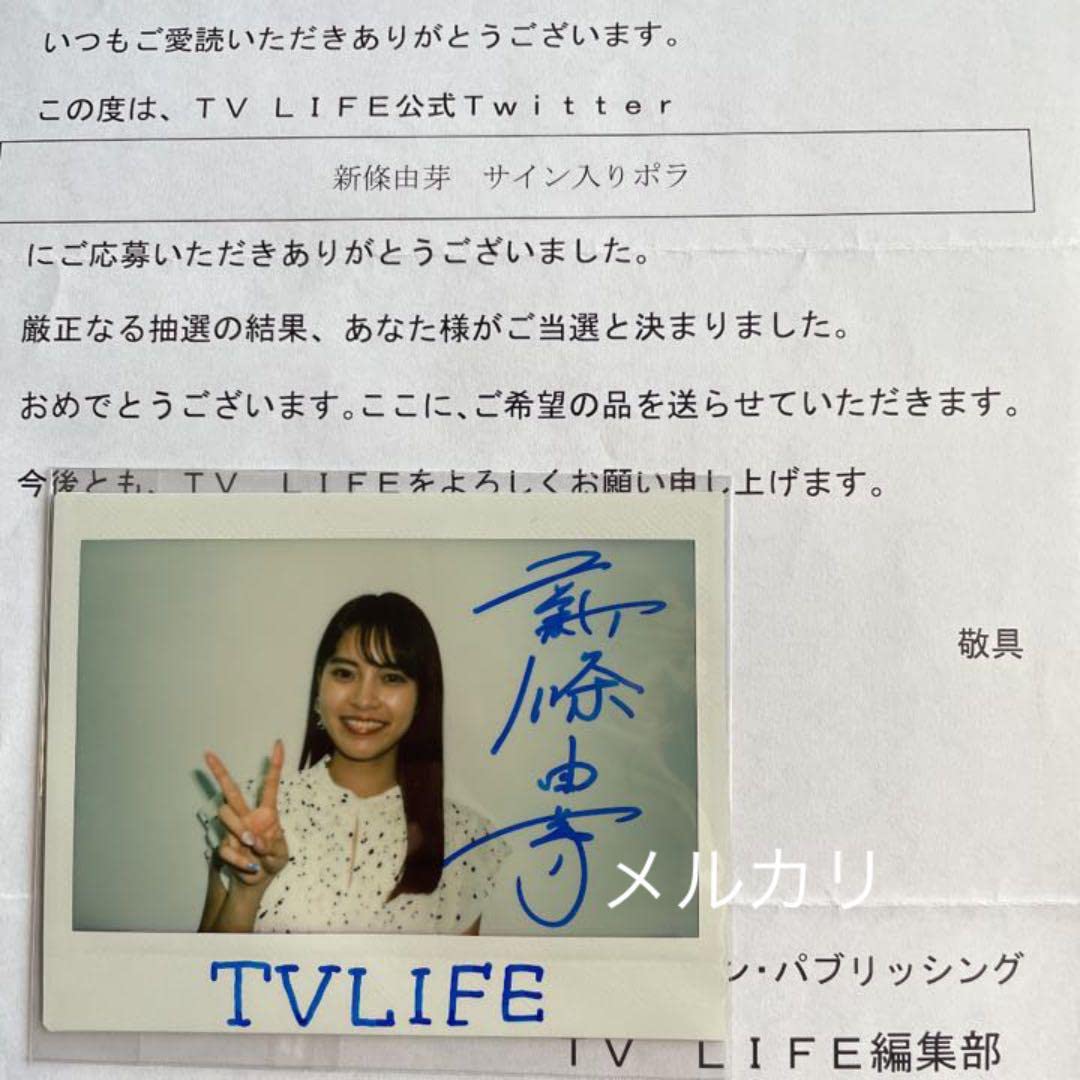 いつもご愛読いただきありがとうございます。
この度は、ＴＶ ＬＩＦＥ公式Ｔｗｉｔｔｅｒ
新條由芽　サイン入りポラ
にご応募いただきありがとうございました。
厳正なる抽選の結果、あなた様がご当選と決まりました。
おめでとうございます。ここに、ご希望の品を送らせていただきます。
今後とも、ＴＶ　ＬＩＦＥをよろしくお願い申し上げます。
敬具
新條由芽
メルカリ
TVLIFE
ン・パブリッシング
ＴＶ　ＬＩＦＥ編集部